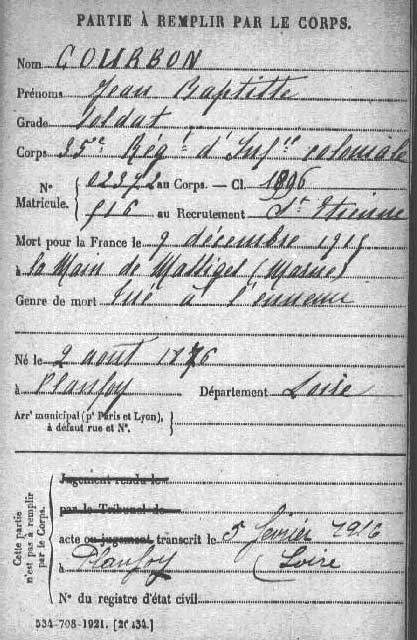 PARTIE À REMPLIR PAR LE CORPS.
Nom COURBON
Prénoms Jean Baptiste
Grade Soldat
Corps 35e Régt d'Infie coloniale
No Matricule. 02372 au Corps. — Cl. 1896
916 au Recrutement St Etienne
Mort pour la France le 9 décembre 1915
à la Main de Massiges (Marne)
Genre de mort tué à l'ennemi
Né le 2 août 1876
à Planfoy Département Loire
Arrt municipal (pr Paris et Lyon), à défaut rue et No.
Cette partie n'est pas à remplir par le Corps.
Jugement rendu le
par le Tribunal de
acte ou jugement transcrit le 5 février 1916
à Planfoy (Loire
No du registre d'état civil
534-708-1921. [26434.]